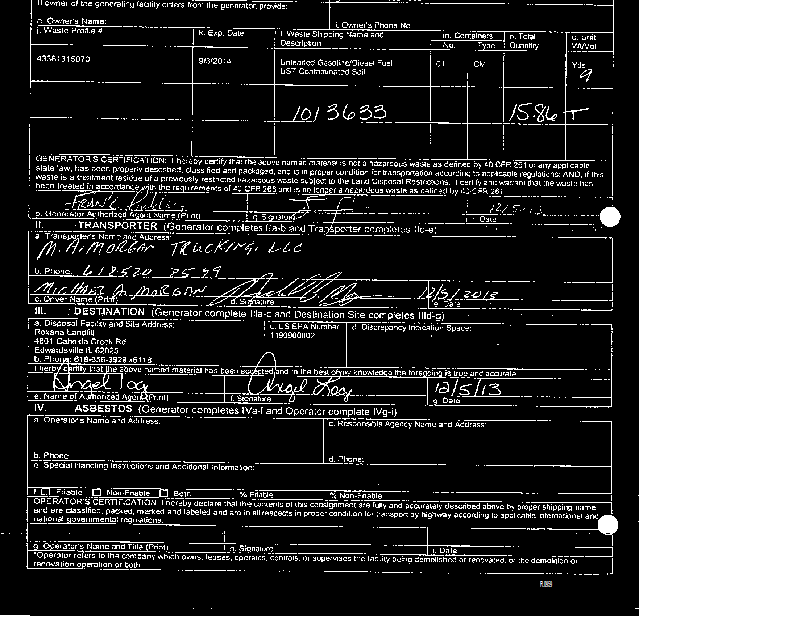 If owner of the generating facility differs from the generator, provide:
h. Owner's Name: i. Owner's Phone No
j. Waste Profile # k. Exp. Date l. Waste Shipping Name and Description m. Containers No. Type n. Total Quantity o. Unit Wt/Vol
9/3/2014 Unleaded Gasoline/Diesel Fuel UST Contaminated Soil CM Yds
9
1013633 15.86 T
GENERATOR'S CERTIFICATION: I hereby certify that the above named material is not a hazardous waste as defined by 40 CFR 261 or any applicable
state law, has been properly described, classified and packaged, and is in proper condition for transportation according to applicable regulations; AND, if this
waste is a treatment residue of a previously restricted hazardous waste subject to the Land Disposal Restrictions, I certify and warrant that the waste has
been treated in accordance with the requirements of 40 CFR 268 and is no longer a hazardous waste as defined by 40 CFR 261
Frank
p. Generator Authorized Agent Name (Print) q. Signature r. Date
II. TRANSPORTER (Generator completes IIa-b and Transporter completes IIc-e)
a. Transporter's Name and Address:
M.A. MORGAN TRUCKING, LLC
b. Phone: 618 520
MICHAEL A. MORGAN 12/5/2013
c. Driver Name (Print) d. Signature e. Date
III. DESTINATION (Generator complete IIIa-c and Destination Site completes IIId-g)
a. Disposal Facility and Site Address: c. US EPA Number d. Discrepancy Indication Space:
Roxana Landfill
4601 Cahokia Creek Rd
Edwardsville IL 62025
b. Phone: 618-656-
I hereby certify that the above named material has been accepted and to the best of my knowledge the foregoing is true and accurate
Angel 12/5/13
e. Name of Authorized Agent (Print) f. Signature g. Date
IV. ASBESTOS (Generator completes IVa-f and Operator complete IVg-i)
a. Operator's Name and Address: c. Responsible Agency Name and Address:
b. Phone d. Phone:
e. Special Handling Instructions and Additional Information:
f. Friable Non-Friable Both % Friable % Non-Friable
OPERATOR'S CERTIFICATION: I hereby declare that the contents of this consignment are fully and accurately described above by proper shipping name
and are classified, packed, marked and labeled and are in all respects in proper condition for transport by highway according to applicable international and
national governmental regulations.
g. Operator's Name and Title (Print) h. Signature i. Date
*Operator refers to the company which owns, leases, operates, controls, or supervises the facility being demolished or renovated, or the demolition or
renovation operation or both